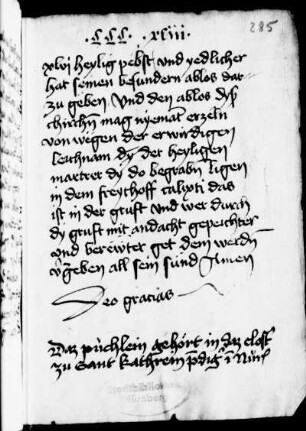 285
.CCC. .xliii.
xlvi heylig pebst und yedlicher
hat seinen besundern ablos dar-
zu geben. Und den ablos dyß
chirchn̄ mag nyemat erzeln
von wegen der erwirdigen
leichnam dy der heyligen
martrer dy do begrabn̄ ligen
in dem freythoff calixti das
ist in der gruft und wer durch
dy gruft mit andacht gepeichter
und berewter get dem werdn̄
v̄geben all sein sund Amen
Deo gracias
Daz püchlein gehört in daz clost̄
zu Sant kathrein p̄diḡ ī Nür̄
Stadtbibliothek
Nürnberg